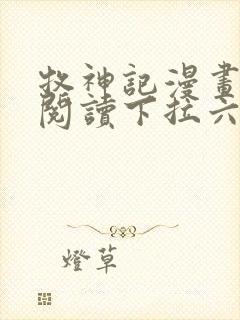 牧神記漫畫
閱讀下拉六
燈草